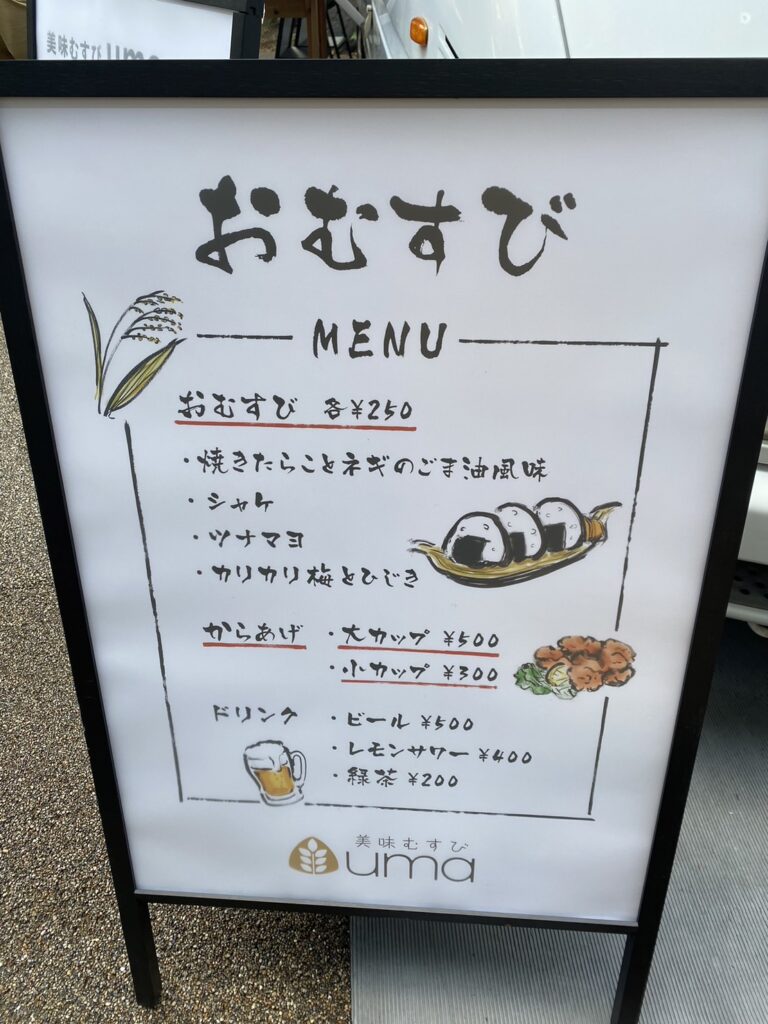 美味むすび uma
おむすび
MENU
おむすび 各¥250
・焼きたらことネギのごま油風味
・シャケ
・ツナマヨ
・カリカリ梅とひじき
からあげ ・大カップ ¥500
・小カップ ¥300
ドリンク ・ビール ¥500
・レモンサワー ¥400
・緑茶 ¥200
美味むすび
uma